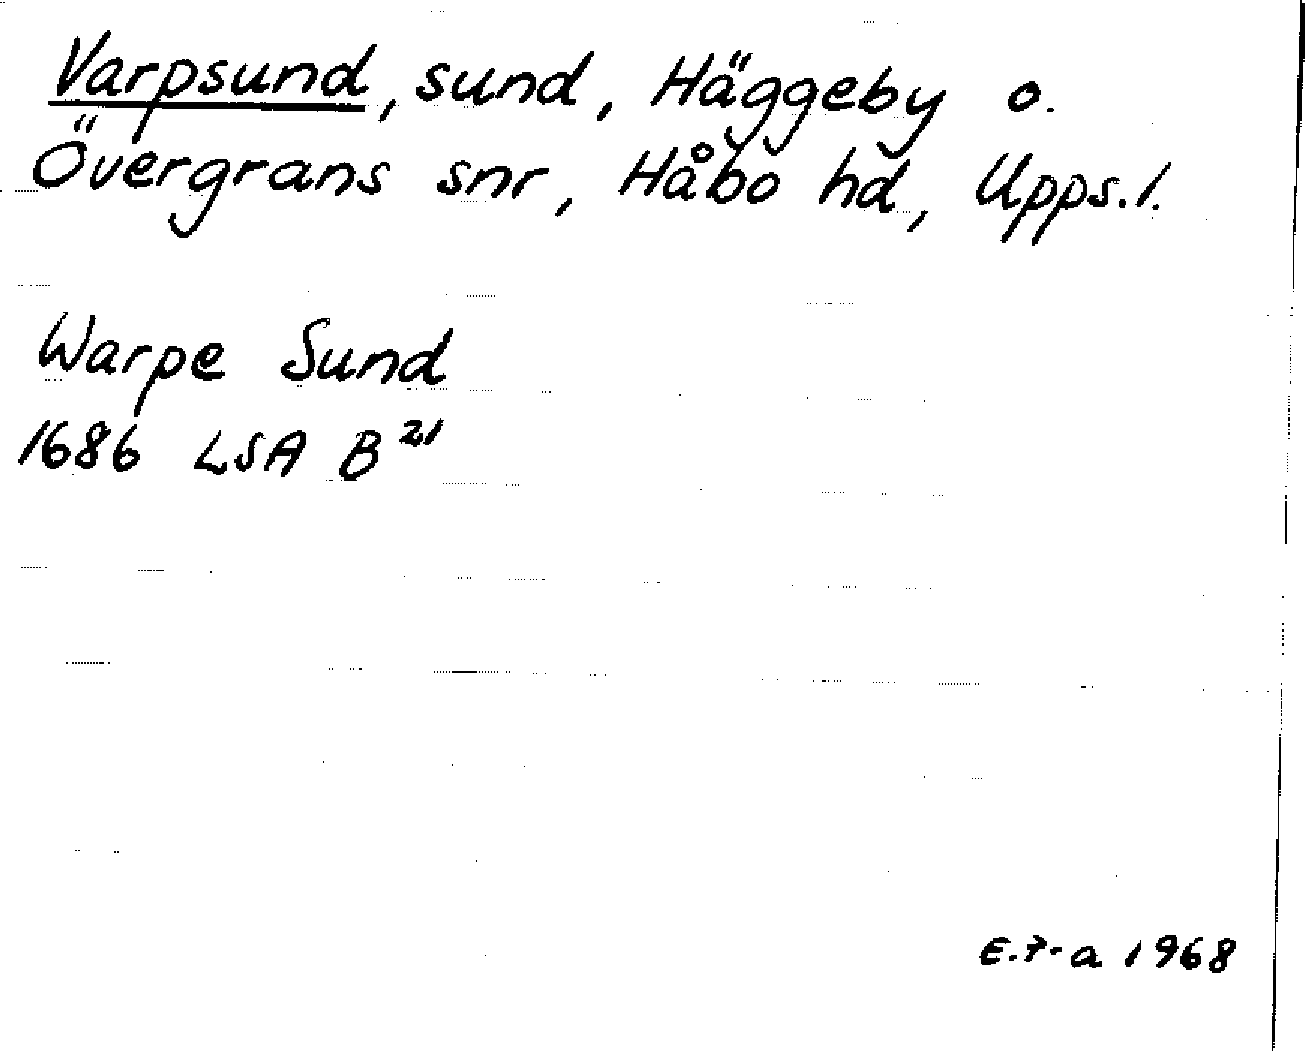 Varpsund, sund, Häggeby o.
Övergrans snr, Håbo hd, Upps.l.
Warpe Sund
1686 LSA B 21
1968